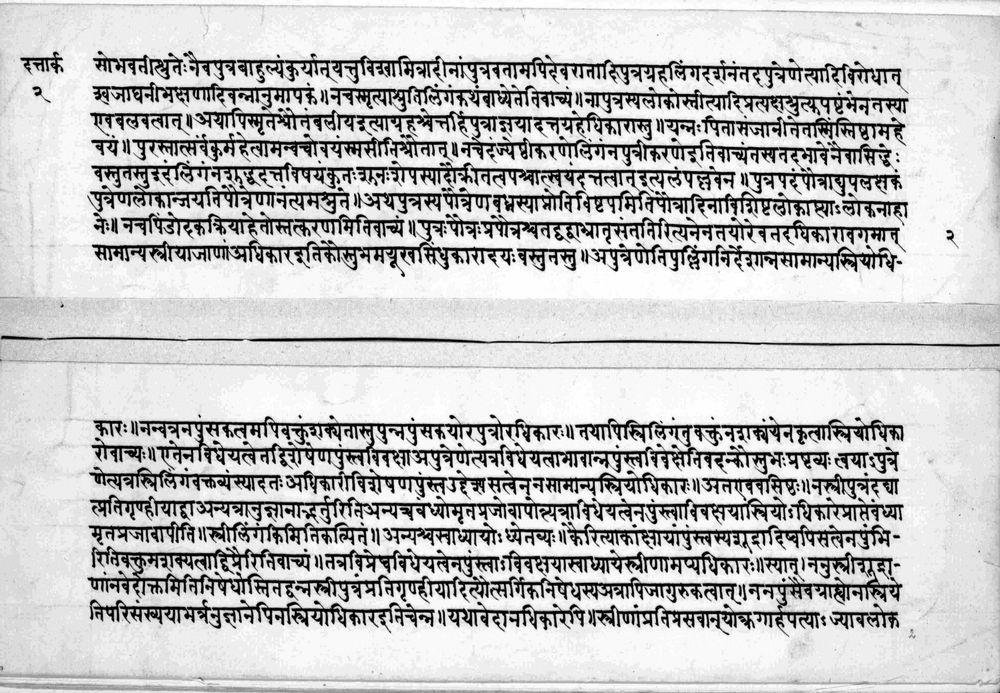 दत्तार्क सोभवतीत्युतेःनैवपुत्रबाहुल्यंकुर्यात्यत्तुविश्वामित्रादीनांपुत्रवतामपिदेवरातादिपुत्रग्रहलिंगदर्शनंतदपुत्रेणेत्यादिविरोधात्
२ श्वजाघनीभक्षणादिवन्नानुमापकं॥नचस्मृत्याश्रुतिलिंगंकथंबाध्येतेतिवाच्यं॥नापुत्रस्यलोकोस्तीत्यादिप्रत्यक्षश्रुत्युपष्टंभेनतस्या
एवबलवत्वात्॥अथापिस्मृतेश्रौतंबलीयइत्याग्रहश्चेत्तर्हिपुत्रानुज्ञयादत्तग्रहेधिकारोस्तु॥यन्नःपितासंजानीतेतस्मिंस्तिष्ठामहे
वयं॥पुरस्तात्सर्वेकुर्महेत्वामन्वचोवयंस्मसीतिश्रौतात्॥नचेदंज्येष्ठीकरणेलिंगंनपुत्रीकरणेइतिवाच्यंतस्यतदभावेनैवासिद्धेः
वस्तुतस्तुइदंलिंगंनशुद्धदत्तविषयंकुतःशुनःशेपस्यादौक्रीतत्वपश्चात्स्वयंदत्तत्वातइत्यलंपल्लवेन॥पुत्रपदंपौत्राद्युपलक्षकं
पुत्रेणलोकान्जयतिपौत्रेणानंत्यमश्नुते॥अथपुत्रस्यपौत्रेणब्रध्नस्याप्नोतिविष्टपमितिपौत्रादिनाविशिष्टलोकाप्त्याऽलोकनाहा
नेः॥नचपिंडोदकक्रियाहेतोस्तत्करणमितिवाच्यं॥पुत्रःपौत्रःप्रपौत्रश्चतद्वद्वाभ्रातृसंततिरित्यनेनतयोरेवतदधिकारावगमात् २
सामान्यस्त्रीयाजाणांअधिकारइतिकौस्तुभमयूखसिंधुकारादयःवस्तुतस्तु॥अपुत्रेणेतिपुल्लिंगनिर्देशान्नसामान्यस्त्रियोधि-
कारः॥नन्वत्रनपुंसकत्वमपिवक्तुंशक्येतास्तुपुन्नपुंसकयोरपुत्रोरधिकारः॥तथापिस्त्रिलिंगंतुवक्तुंनशक्यंयेनकृत्वास्त्रियोधिका
रोवाच्यः॥एतेनविधेयत्वेतद्विशेषणपुंस्त्वविवक्षाअपुत्रेणेत्यत्रविधेयत्वाभावान्नपुंस्त्वविवक्षेतिवदन्कौस्तुभःप्रष्टव्यःत्वयाऽपुत्रे
णेत्यत्रस्त्रिलिंगंवक्तव्यंस्यादतःअधिकारीविशेषणपुंस्त्वउद्देश्यसत्वेननसामान्यस्त्रियोधिकारः॥अतएववसिष्ठः॥नस्त्रीपुत्रंदद्या
त्प्रतिगृण्हीयाद्वाअन्यत्रानुज्ञानाद्भर्तुरितिअन्यच्चवंध्योमृतप्रजोवापीत्यत्राविधेयत्वेनपुंस्त्वाविवक्षयास्त्रियोऽधिकारंप्राप्तेवंध्या
मृतप्रजावापीति॥स्त्रीलिंगंकिमितिकल्पितं॥अन्यश्चस्वाध्यायोऽध्येतव्यः॥कैरित्याकांक्षायांपुंस्त्वस्यशूद्रादिष्वपिसत्वेनपुंभि-
रितिवक्तुमशक्यत्वाद्विप्रैरितिवाच्यं॥तत्रविप्रेष्वविधेयत्वेनपुंस्त्वाऽविवक्षयास्वाध्यायेस्त्रीणामप्यधिकारःस्यात्॥ननुस्त्रीशूद्रा-
णांनवेदोक्तमितिनिषेधोस्तितद्वन्नस्त्रीपुत्रंप्रतिगृण्हीयादित्यौत्सर्गिकनिषेधस्यअत्रापिजागरुकत्वात्॥ननपुंसैवग्राह्योनस्त्रिये
तिपरिसंख्ययाभर्त्रनुज्ञानेपिनस्त्रियोधिकारइतिचेन्न॥यथावेदानधिकारेपि॥स्त्रीणांप्रतिप्रसवान्यथोक्तगार्हपत्याऽज्यावलोक
२